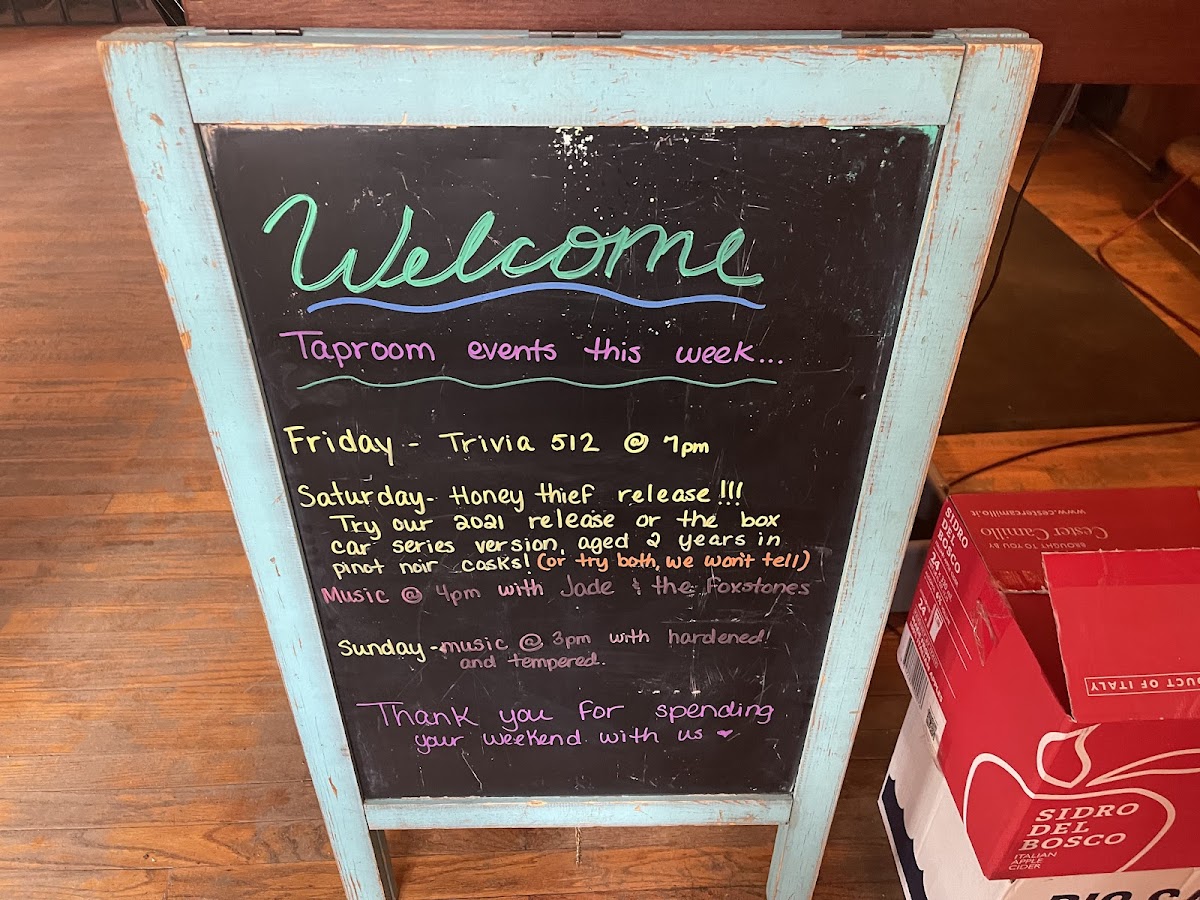 Welcome
Taproom events this week...
Friday - Trivia 512 @ 7pm
Saturday- Honey thief release!!!
Try our 2021 release or the box
car series version, aged 2 years in
pinot noir casks! (or try both, we won't tell)
Music @ 4pm with Jade & the Foxstones
Sunday - music @ 3pm with hardened!
and tempered.
Thank you for spending
your weekend with us ♥
www.cestercamillo.it
Cester Camillo
BROUGHT TO YOU BY
SIDRO
DEL
BOSCO
24
24
PRODUCT OF ITALY
SIDRO
DEL
BOSCO
ITALIAN
APPLE
CIDER